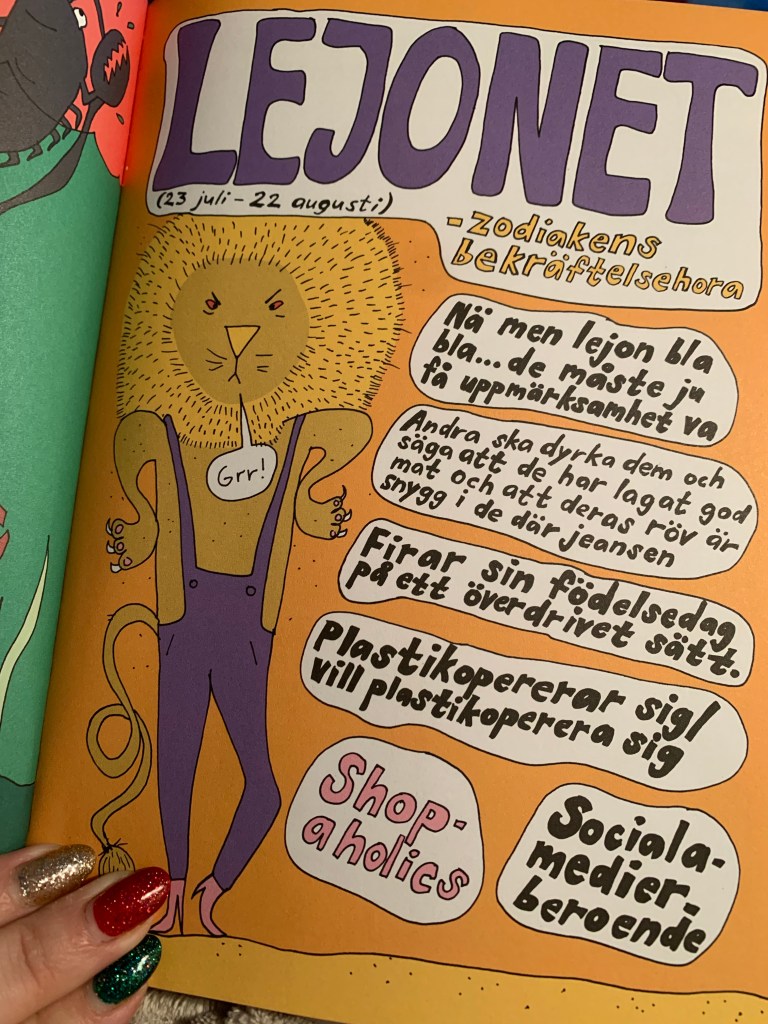 LEJONET
(23 juli - 22 augusti)
- zodiakens
bekräftelsehora
Nä men lejon bla
bla... de måste ju
få uppmärksamhet va
Andra ska dyrka dem och
säga att de har lagat god
mat och att deras röv är
snygg i de där jeansen
Grr!
Firar sin födelsedag
på ett överdrivet sätt.
Plastikopererar sig/
vill plastikoperera sig
Shop-
aholics
Sociala-
medier-
beroende